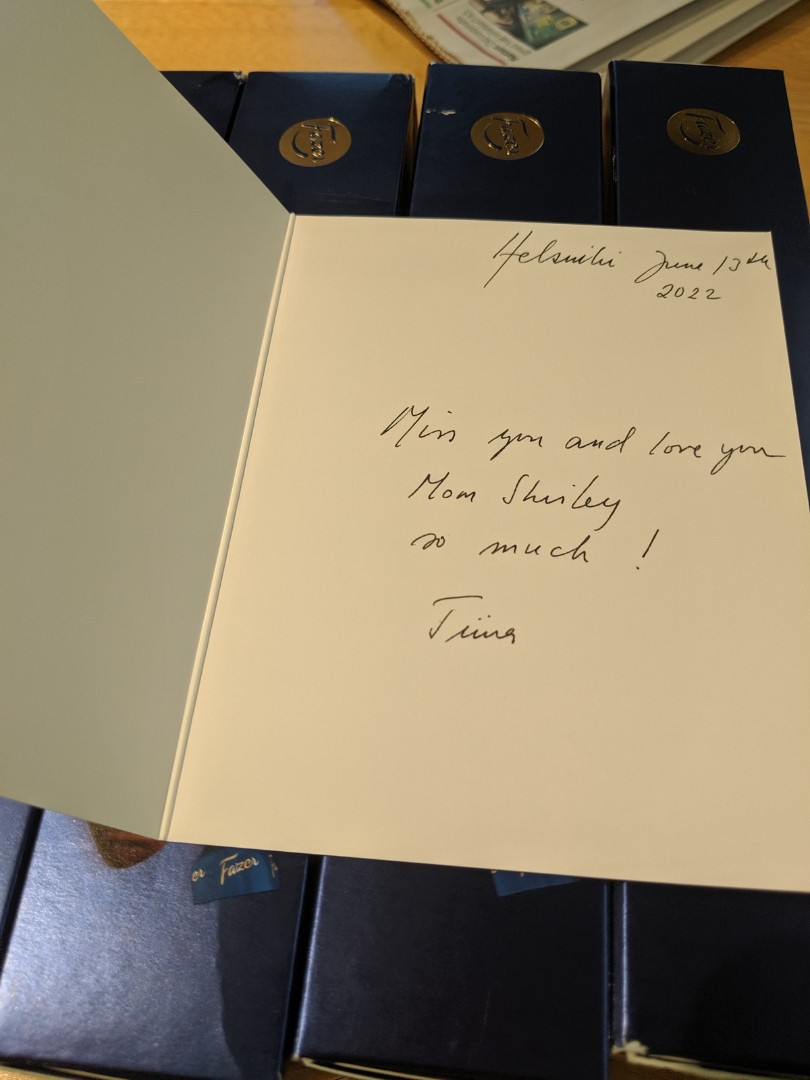 Fazer
Fazer
Fazer
Helsinki June 13th
2022
Miss you and love you
Mom Shirley
so much !
Tiina
er Fazer